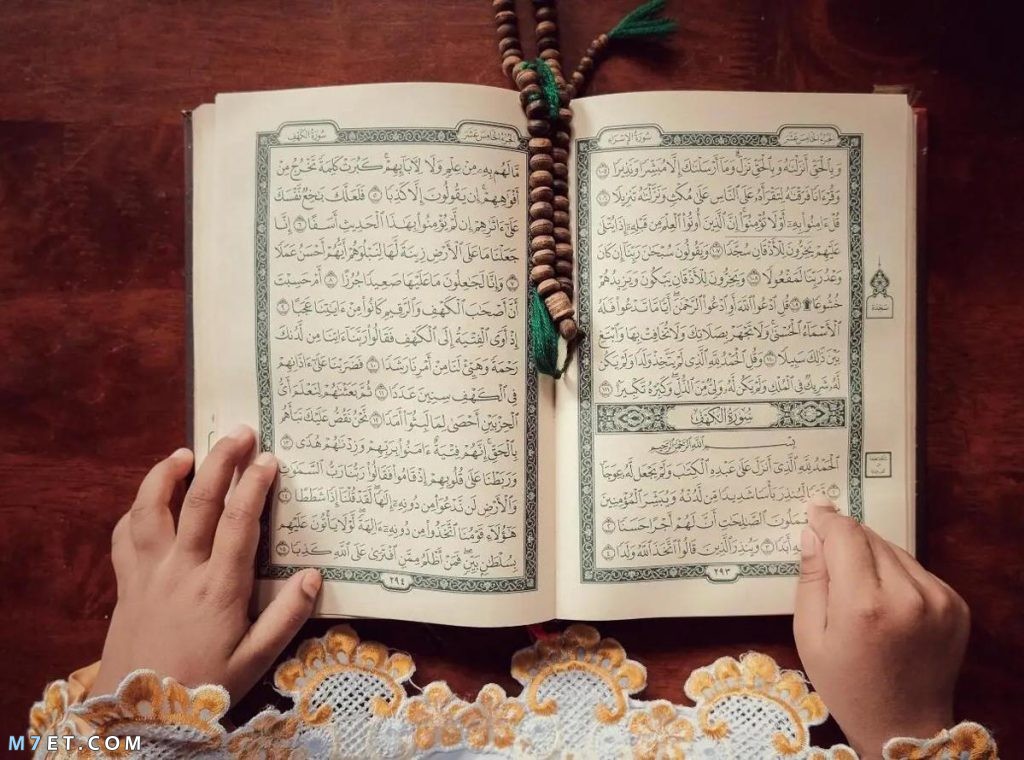 الجُزْءُ الخَامِسَ عَشَرَ
سُورَةُ الإِسْرَاءِ
وَبِالْحَقِّ أَنزَلْنَٰهُ وَبِالْحَقِّ نَزَلَ ۗ وَمَآ أَرْسَلْنَٰكَ إِلَّا مُبَشِّرًا وَنَذِيرًا ١٠٥
وَقُرْءَانًا فَرَقْنَٰهُ لِتَقْرَأَهُۥ عَلَى ٱلنَّاسِ عَلَىٰ مُكْثٍ وَنَزَّلْنَٰهُ تَنزِيلًا ١٠٦
قُلْ ءَامِنُوا۟ بِهِۦٓ أَوْ لَا تُؤْمِنُوٓا۟ ۚ إِنَّ ٱلَّذِينَ أُوتُوا۟ ٱلْعِلْمَ مِن قَبْلِهِۦٓ إِذَا يُتْلَىٰ
عَلَيْهِمْ يَخِرُّونَ لِلْأَذْقَانِ سُجَّدًا ١٠٧ وَيَقُولُونَ سُبْحَٰنَ رَبِّنَآ إِن كَانَ
وَعْدُ رَبِّنَا لَمَفْعُولًا ١٠٨ وَيَخِرُّونَ لِلْأَذْقَانِ يَبْكُونَ وَيَزِيدُهُمْ
خُشُوعًا ۩ ١٠٩ قُلِ ٱدْعُوا۟ ٱللَّهَ أَوِ ٱدْعُوا۟ ٱلرَّحْمَٰنَ ۖ أَيًّا مَّا تَدْعُوا۟ فَلَهُ
ٱلْأَسْمَآءُ ٱلْحُسْنَىٰ ۚ وَلَا تَجْهَرْ بِصَلَاتِكَ وَلَا تُخَافِتْ بِهَا وَٱبْتَغِ
بَيْنَ ذَٰلِكَ سَبِيلًا ١١٠ وَقُلِ ٱلْحَمْدُ لِلَّهِ ٱلَّذِى لَمْ يَتَّخِذْ وَلَدًا وَلَمْ يَكُن
لَّهُۥ شَرِيكٌ فِى ٱلْمُلْكِ وَلَمْ يَكُن لَّهُۥ وَلِىٌّ مِّنَ ٱلذُّلِّ ۖ وَكَبِّرْهُ تَكْبِيرًۢا ١١١
سُورَةُ الكَهْفِ
بِسْمِ ٱللَّهِ ٱلرَّحْمَٰنِ ٱلرَّحِيمِ
ٱلْحَمْدُ لِلَّهِ ٱلَّذِىٓ أَنزَلَ عَلَىٰ عَبْدِهِ ٱلْكِتَٰبَ وَلَمْ يَجْعَل لَّهُۥ عِوَجَا
١ لِّيُنذِرَ بَأْسًا شَدِيدًا مِّن لَّدُنْهُ وَيُبَشِّرَ ٱلْمُؤْمِنِينَ
يَعْمَلُونَ ٱلصَّٰلِحَٰتِ أَنَّ لَهُمْ أَجْرًا حَسَنًا ٢
فِيهِ أَبَدًا ٣ وَيُنذِرَ ٱلَّذِينَ قَالُوا۟ ٱتَّخَذَ ٱللَّهُ وَلَدًا ٤
٢٩٣
سَجْدَة
الجُزْءُ الخَامِسَ عَشَرَ
سُورَةُ الكَهْفِ
مَّا لَهُم بِهِۦ مِنْ عِلْمٍ وَلَا لِءَابَآئِهِمْ ۚ كَبُرَتْ كَلِمَةً تَخْرُجُ مِنْ
أَفْوَٰهِهِمْ ۚ إِن يَقُولُونَ إِلَّا كَذِبًا ٥ فَلَعَلَّكَ بَٰخِعٌ نَّفْسَكَ
عَلَىٰٓ ءَاثَٰرِهِمْ إِن لَّمْ يُؤْمِنُوا۟ بِهَٰذَا ٱلْحَدِيثِ أَسَفًا ٦ إِنَّا
جَعَلْنَا مَا عَلَى ٱلْأَرْضِ زِينَةً لَّهَا لِنَبْلُوَهُمْ أَيُّهُمْ أَحْسَنُ عَمَلًا
٧ وَإِنَّا لَجَٰعِلُونَ مَا عَلَيْهَا صَعِيدًا جُرُزًا ٨ أَمْ حَسِبْتَ
أَنَّ أَصْحَٰبَ ٱلْكَهْفِ وَٱلرَّقِيمِ كَانُوا۟ مِنْ ءَايَٰتِنَا عَجَبًا ٩
إِذْ أَوَى ٱلْفِتْيَةُ إِلَى ٱلْكَهْفِ فَقَالُوا۟ رَبَّنَآ ءَاتِنَا مِن لَّدُنكَ
رَحْمَةً وَهَيِّئْ لَنَا مِنْ أَمْرِنَا رَشَدًا ١٠ فَضَرَبْنَا عَلَىٰٓ ءَاذَانِهِمْ
فِى ٱلْكَهْفِ سِنِينَ عَدَدًا ١١ ثُمَّ بَعَثْنَٰهُمْ لِنَعْلَمَ أَىُّ
ٱلْحِزْبَيْنِ أَحْصَىٰ لِمَا لَبِثُوٓا۟ أَمَدًا ١٢ نَّحْنُ نَقُصُّ عَلَيْكَ نَبَأَهُم
بِٱلْحَقِّ ۚ إِنَّهُمْ فِتْيَةٌ ءَامَنُوا۟ بِرَبِّهِمْ وَزِدْنَٰهُمْ هُدًى ١٣
وَرَبَطْنَا عَلَىٰ قُلُوبِهِمْ إِذْ قَامُوا۟ فَقَالُوا۟ رَبُّنَا رَبُّ ٱلسَّمَٰوَٰتِ
وَٱلْأَرْضِ لَن نَّدْعُوَا۟ مِن دُونِهِۦٓ إِلَٰهًا ۖ لَّقَدْ قُلْنَآ إِذًا شَطَطًا ١٤
هَٰٓؤُلَآءِ قَوْمُنَا ٱتَّخَذُوا۟ مِن دُونِهِۦٓ ءَالِهَةً ۖ لَّوْلَا يَأْتُونَ عَلَيْهِم
بِسُلْطَٰنٍۭ بَيِّنٍ ۖ فَمَنْ أَظْلَمُ مِمَّنِ ٱفْتَرَىٰ عَلَى ٱللَّهِ كَذِبًا ١٥
٢٩٤
M7ET.COM